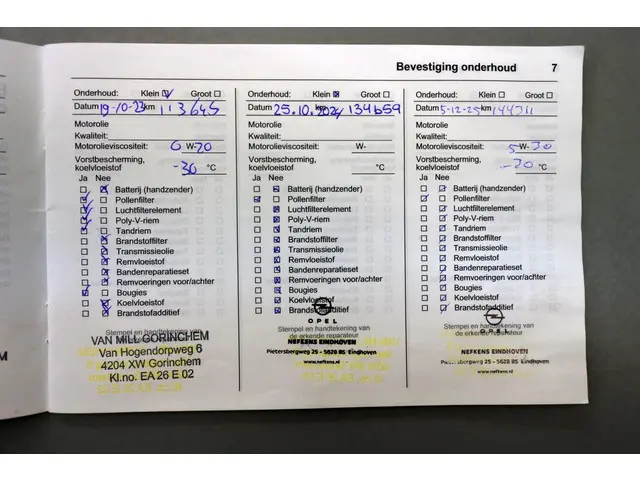 Bevestiging onderhoud 7
Onderhoud: Klein Groot
Datum 19-10-23 km 113645
Motorolie
Kwaliteit:
Motorolieviscositeit: 0 W-20
Vorstbescherming,
koelvloeistof -30 °C
Ja Nee
Batterij (handzender)
Pollenfilter
Luchtfilterelement
Poly-V-riem
Tandriem
Brandstoffilter
Transmissieolie
Remvloeistof
Bandenreparatieset
Remvoeringen voor/achter
Bougies
Koelvloeistof
Brandstofadditief
Stempel en handtekening van
VAN MILL GORINCHEM
Van Hogendorpweg 6
4204 XW Gorinchem
Kl.no. EA 26 E 02
Onderhoud: Klein Groot
Datum 25.10.2024 km 134659
Motorolie
Kwaliteit:
Motorolieviscositeit: W-
Vorstbescherming,
koelvloeistof °C
Ja Nee
Batterij (handzender)
Pollenfilter
Luchtfilterelement
Poly-V-riem
Tandriem
Brandstoffilter
Transmissieolie
Remvloeistof
Bandenreparatieset
Remvoeringen voor/achter
Bougies
Koelvloeistof
Brandstofadditief
OPEL
Stempel en handtekening van
de erkende reparateur
NEFKENS EINDHOVEN
Pietersbergweg 25 - 5628 BS Eindhoven
www.nefkens.nl
Onderhoud: Klein Groot
Datum 5-12-25 km 144311
Motorolie
Kwaliteit:
Motorolieviscositeit: 5 W-30
Vorstbescherming,
koelvloeistof -20 °C
Ja Nee
Batterij (handzender)
Pollenfilter
Luchtfilterelement
Poly-V-riem
Tandriem
Brandstoffilter
Transmissieolie
Remvloeistof
Bandenreparatieset
Remvoeringen voor/achter
Bougies
Koelvloeistof
Brandstofadditief
OPEL
Stempel en handtekening van
de erkende reparateur
NEFKENS EINDHOVEN
Pietersbergweg 25 - 5628 BS Eindhoven
www.nefkens.nl